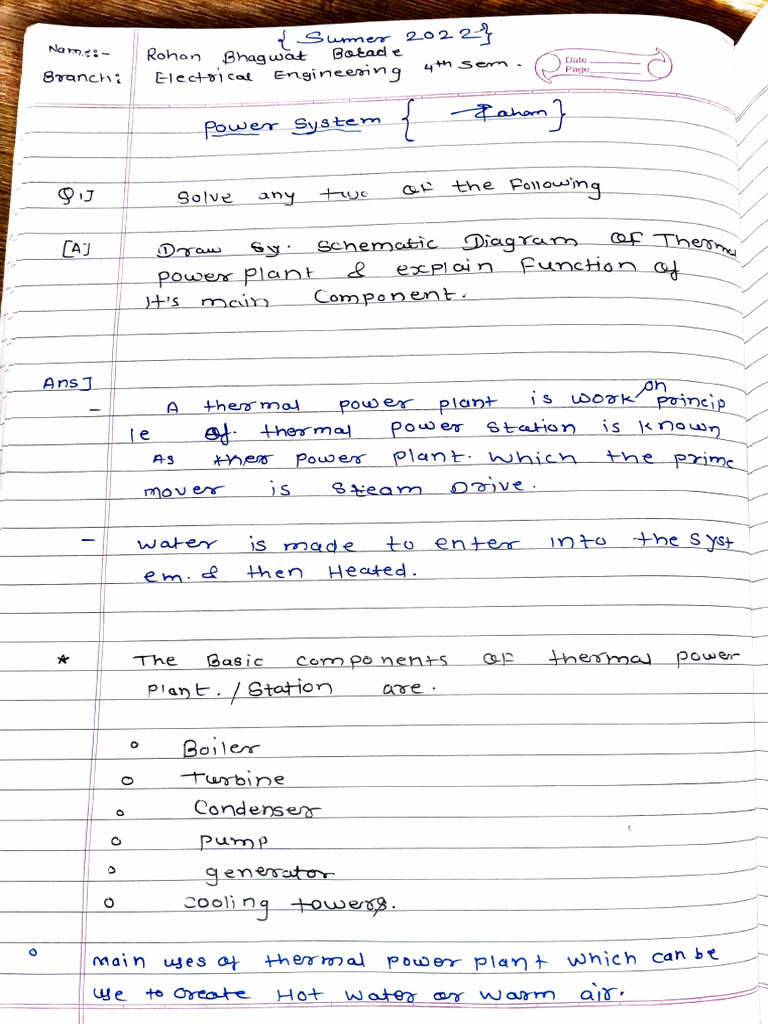 { Summer 2022 }
Name:- Rohan Bhagwat Borade
Branch: Electrical Engineering 4th sem.
Date
Page
Power System {
Q1] Solve any two of the Following
[A] Draw Sy. Schematic Diagram of Thermal
power plant & explain Function of
It's main Component.
Ans]
- A thermal power plant is work on princip
le of thermal power station is known
As ther power plant. Which the prime
mover is Steam Drive.
- Water is made to enter into the syst
em. & then Heated.
* The Basic components of thermal power
plant. / Station are.
o Boiler
o Turbine
o Condenser
o pump
o generator
o cooling towers.
o main uses of thermal power plant which can be
use to create Hot water or warm air.